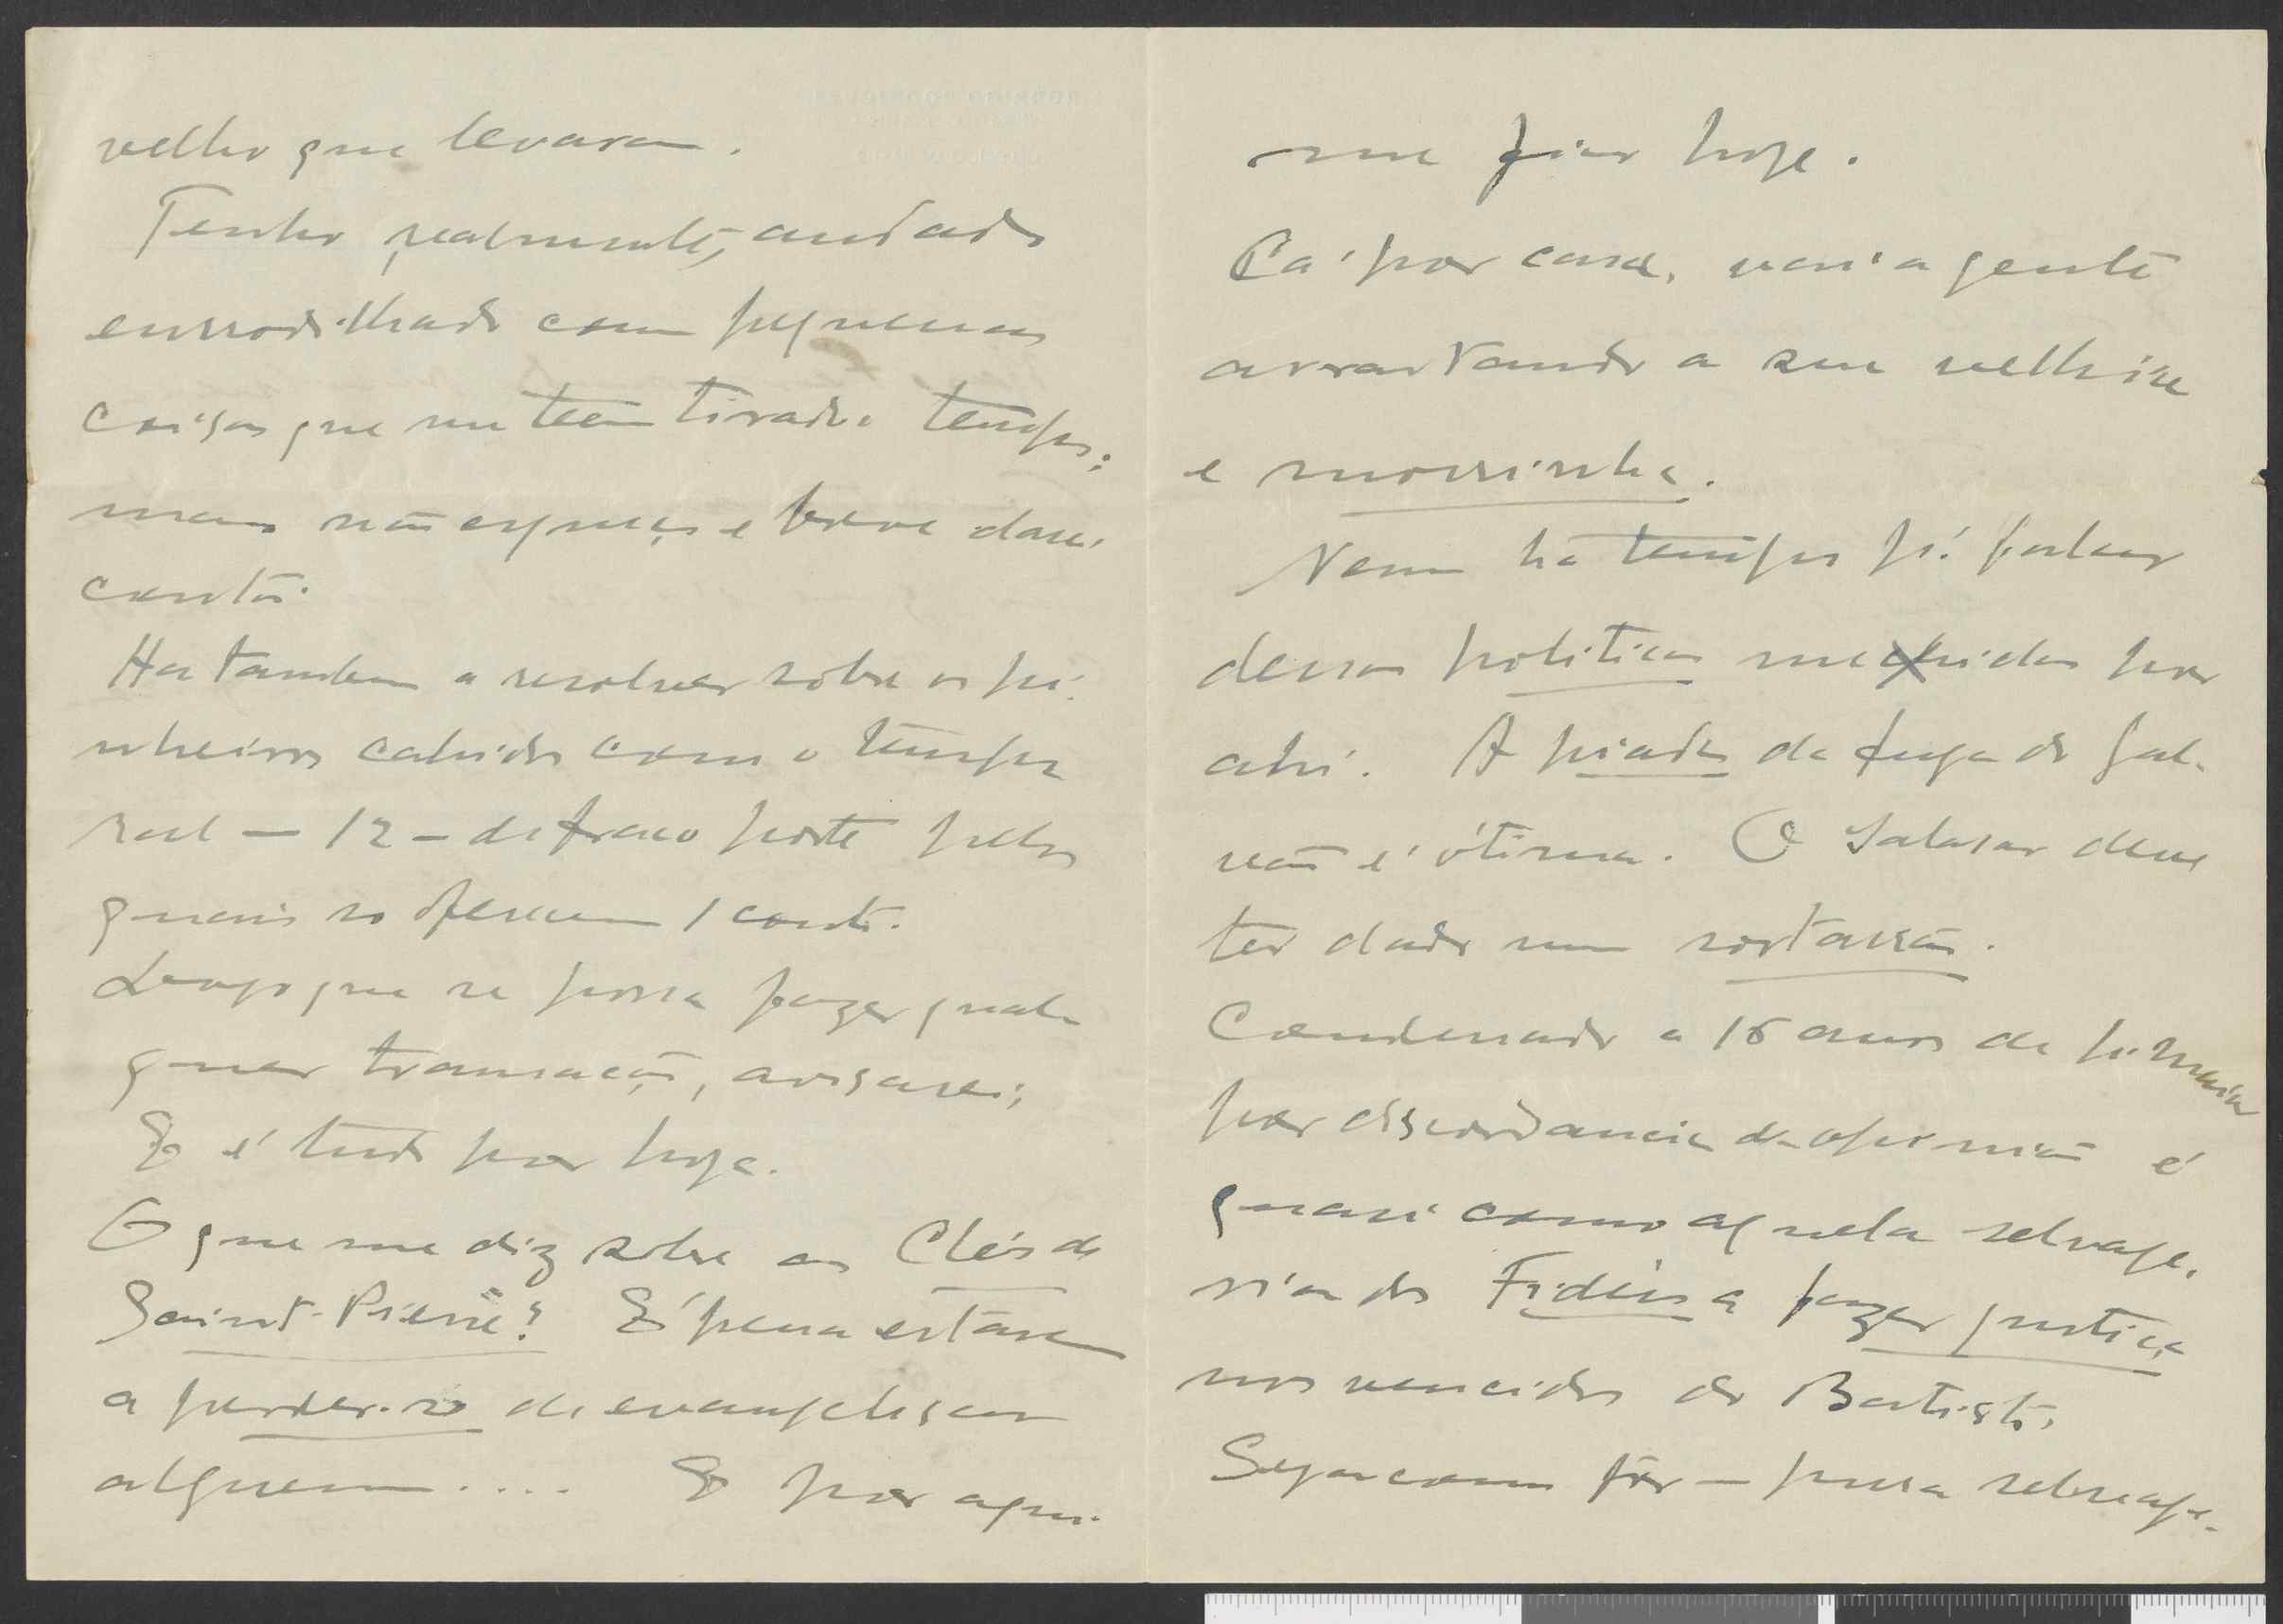 velho que levaram.
Tenho, realmente, andado
enrrodilhado com pequenas
coisas que me teem tirado tempo;
mas não esqueço e breve darei
conta.
Ha tambem a resolver sobre os pi-
nheiros cahidos com o tempo-
ral — 12 — de fraco porte pelos
quais so oferecem 1 conto.
Logo que se possa fazer qual-
quer transacção, avisarei;
E é tudo por hoje.
O que me diz sobre as Clés de
Saint-Pierre? É pena estarem
a perder-se de evangelisar
alguem.... E por aqui
me fico hoje.
Cá por casa, vai a gente
arrastando a sua velhice
e morrinha.
Nem ha tempo p.ª falar
dessas politicas mexidas por
ahi. A piada da fuga do Gal-
vão é ótima. O Salasar deve
ter dado um sortassão.
Condenado a 16 anos de
por discordancia de opinião é
quasi como aquela selvage-
ria do Fidel a fazer justiça
nos vencidos do Batista.
Seja como fôr — pura selvage-